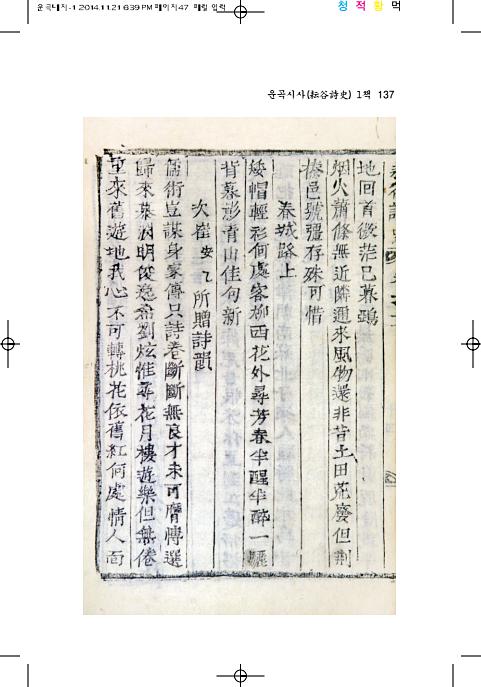 운곡내지-1 2014.11.21 6:39 PM 페이지47 매킬 입력
청 적 황 먹
운곡시사(耘谷詩史) 1책 137
地回首微茫已暮鵶
烟火蕭條無近隣邇來風物還非昔土田荒廢但荆
榛邑號彊存殊可惜
春城路上
矮帽輕衫何處客柳西花外尋芳春半醒半醉一驢
背暮影青山佳句新
次崔安乙所贈詩韻
儒術豈謀身家傳只詩卷斷斷無良才未可膺傳選
歸來慕淵明俊逸希劉炫惟尋花月樓遊樂但無倦
重來舊遊地我心不可轉桃花依舊紅何處情人面